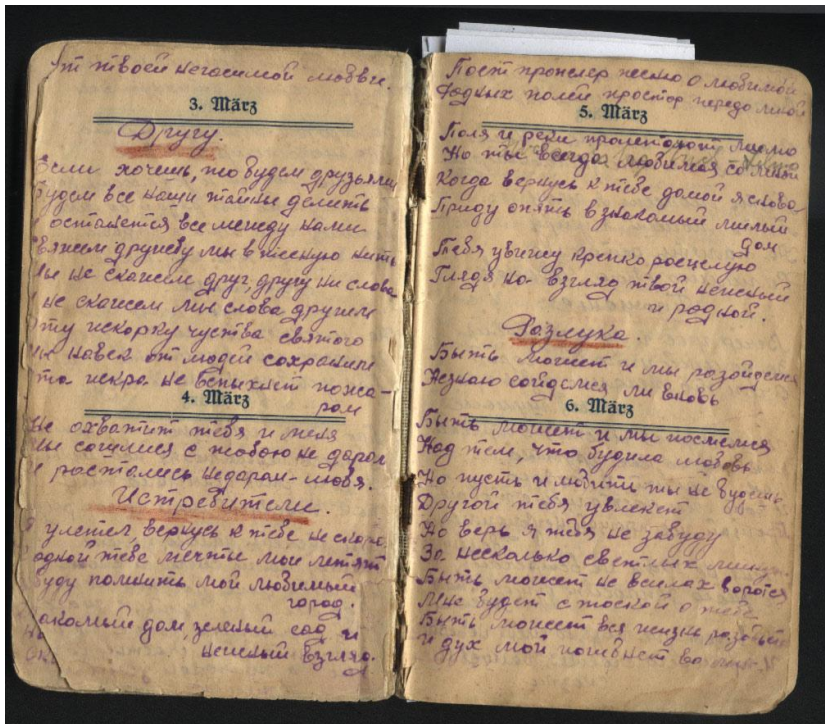 От твоей негасимой любви.
3. März
Другу.
Если хочешь, то будем друзьями
Будем все наши тайны делить
И останется все между нами
Свяжем дружбу мы в тесную нить
Мы не скажем друг другу ни слова
И не скажем мы слова другим
Эту искорку чуства святого
Мы навек от людей сохраним
Эта искра не вспыхнет пожа-
ром
4. März
Не охватит тебя и меня
Мы сошлися с тобою не даром
И росталась недаром – любя.
Истребители.
Я улетел, вернусь к тебе не скоро
родной тебе мечты мои летят
Буду помнить мой любимый
город.
Знакомый дом, зеленый сад и
нежный взгляд.
Поет пропелер песню о любимой
Родных полей простор передо мной
5. März
Поля и реки пролетают мимо
Но ты всегда любимая со мной
Когда вернусь к тебе домой я снова,
Приду опять в знакомый милый
дом
Тебя увижу крепко росцелую
Глядя на взгляд твой нежный
и родной.
Разлука.
Быть может и мы разойдемся
Незнаю сойдемся ли вновь
6. März
Быть может и мы посмеемся
Над тем, что будила любовь
Но пусть и любить ты не будешь
Другой тебя увлекет
Но верь я тебя не забуду
За несколько светлых минут
Быть может не в силах бороться
Мне будет с тоской о тебе
Быть может вся жизнь разобьется
и дух мой погибнет